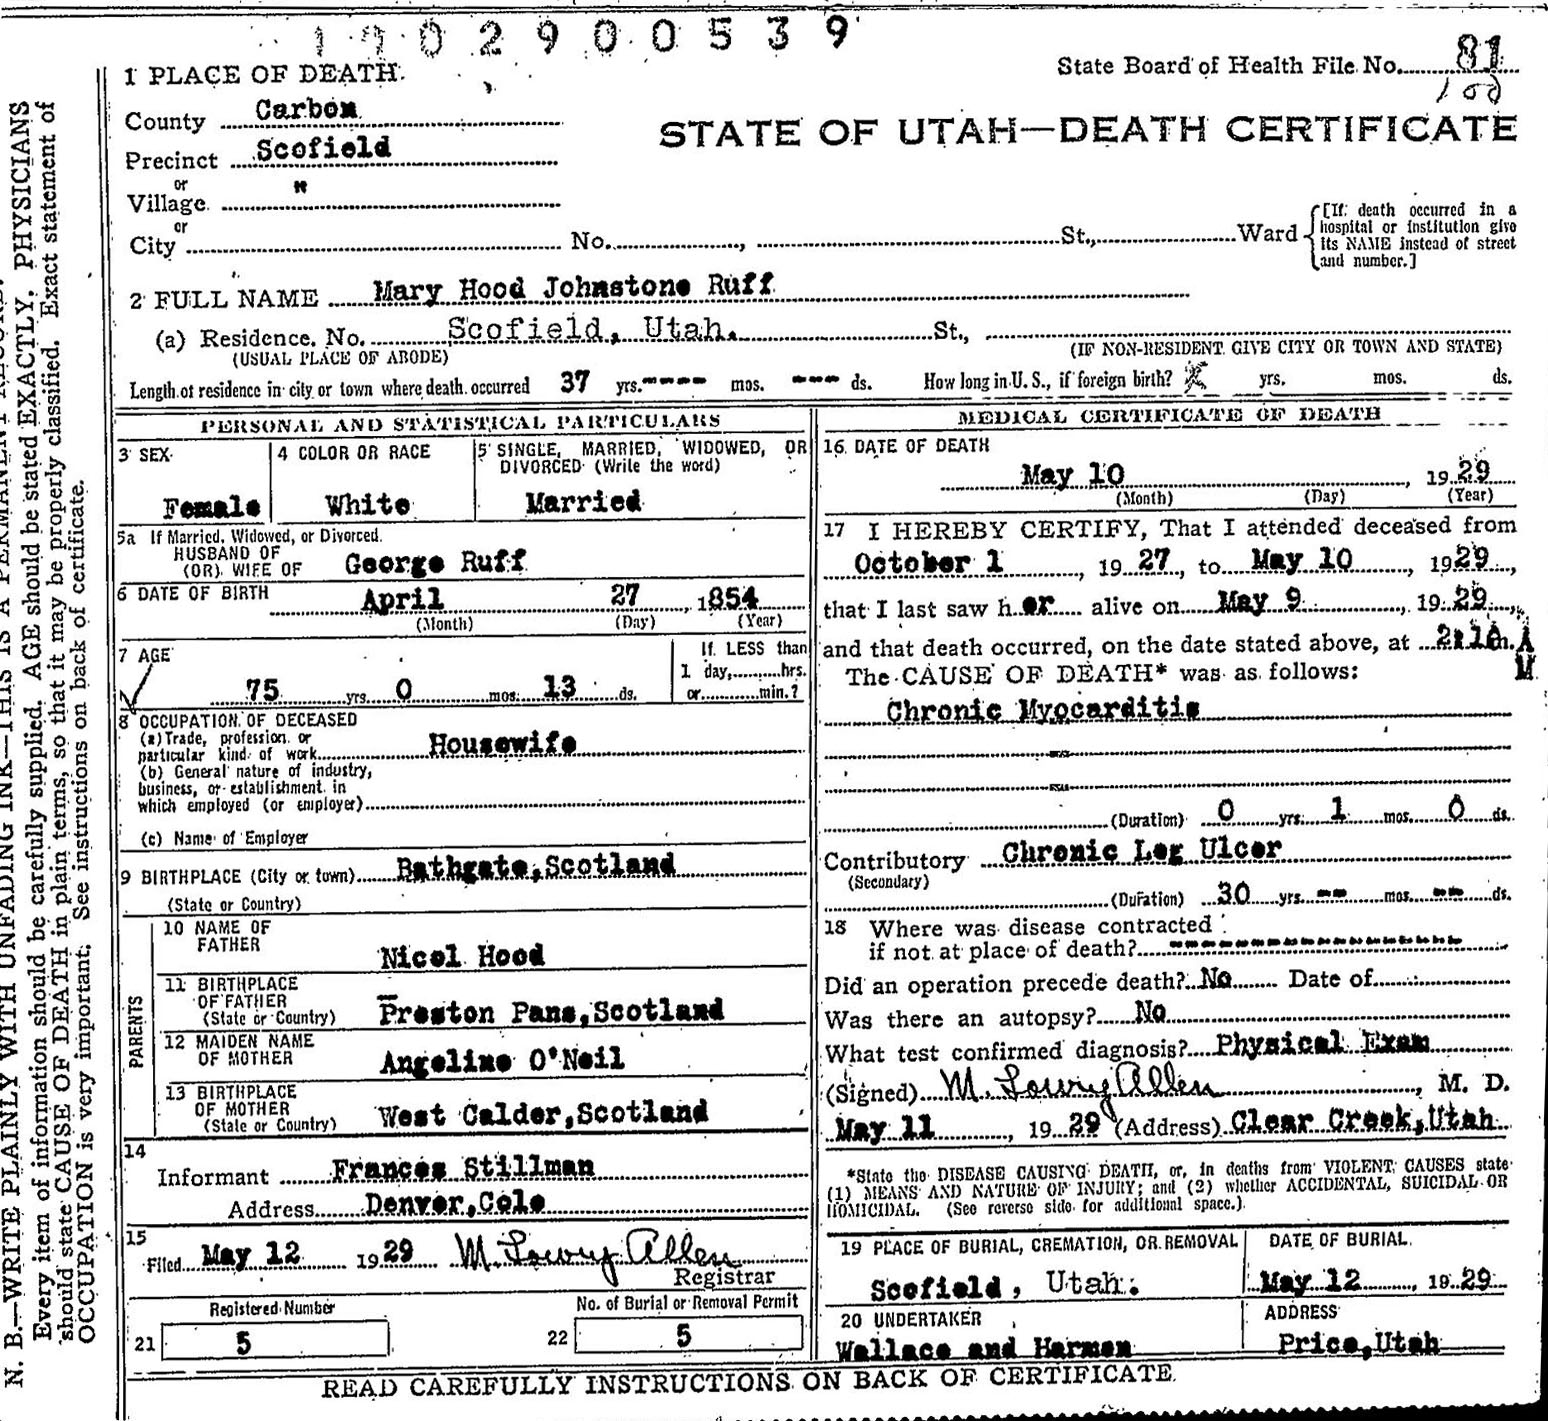 1902900539
State Board of Health File No. 81
1 PLACE OF DEATH
County Carbon
STATE OF UTAH—DEATH CERTIFICATE
Precinct Scofield
or
Village "
or
City No. , St., Ward
[If death occurred in a
hospital or institution give
its NAME instead of street
and number.]
2 FULL NAME Mary Hood Johnstone Ruff
(a) Residence. No. Scofield, Utah. St.,
(USUAL PLACE OF ABODE) (IF NON-RESIDENT GIVE CITY OR TOWN AND STATE)
Length of residence in city or town where death occurred 37 yrs. ---- mos. --- ds. How long in U. S., if foreign birth? yrs. mos. ds.
PERSONAL AND STATISTICAL PARTICULARS
3 SEX
Female
4 COLOR OR RACE
White
5 SINGLE, MARRIED, WIDOWED, OR
DIVORCED (Write the word)
Married
5a If Married, Widowed, or Divorced.
HUSBAND OF
(OR) WIFE OF George Ruff
6 DATE OF BIRTH April 27 , 1854
(Month) (Day) (Year)
7 AGE
75 yrs. 0 mos. 13 ds.
If LESS than
1 day, hrs.
or min.?
8 OCCUPATION OF DECEASED
(a) Trade, profession or
particular kind of work Housewife
(b) General nature of industry,
business, or establishment in
which employed (or employer)
(c) Name of Employer
9 BIRTHPLACE (City or town) Bathgate,Scotland
(State or Country)
PARENTS
10 NAME OF
FATHER Nicol Hood
11 BIRTHPLACE
OF FATHER
(State or Country) Preston Pans,Scotland
12 MAIDEN NAME
OF MOTHER Angeline O'Neil
13 BIRTHPLACE
OF MOTHER
(State or Country) West Calder,Scotland
14
Informant Frances Stillman
Address Denver,Colo
15
Filed May 12 1929 M. Lowry Allen
Registrar
Registered Number
21 5
No. of Burial or Removal Permit
22 5
MEDICAL CERTIFICATE OF DEATH
16 DATE OF DEATH
May 10 , 1929
(Month) (Day) (Year)
17 I HEREBY CERTIFY, That I attended deceased from
October 1 , 1927, to May 10 , 1929,
that I last saw h er alive on May 9 , 1929,
and that death occurred, on the date stated above, at 2:10 m. A
M
The CAUSE OF DEATH* was as follows:
Chronic Myocarditis
(Duration) 0 yrs. 1 mos. 0 ds.
Contributory Chronic Leg Ulcer
(Secondary)
(Duration) 30 yrs. -- mos. -- ds.
18 Where was disease contracted
if not at place of death? ----------------
Did an operation precede death? No Date of
Was there an autopsy? No
What test confirmed diagnosis? Physical Exam
(Signed) M. Lowry Allen , M. D.
May 11 , 1929 (Address) Clear Creek,Utah
*State the DISEASE CAUSING DEATH, or, in deaths from VIOLENT CAUSES state
(1) MEANS AND NATURE OF INJURY; and (2) whether ACCIDENTAL, SUICIDAL OR
HOMICIDAL. (See reverse side for additional space.)
19 PLACE OF BURIAL, CREMATION, OR REMOVAL
Scofield, Utah.
DATE OF BURIAL
May 12 , 1929
20 UNDERTAKER
Wallace and Harmon
ADDRESS
Price,Utah
READ CAREFULLY INSTRUCTIONS ON BACK OF CERTIFICATE
N. B.—WRITE PLAINLY WITH UNFADING INK—THIS IS A PERMANENT RECORD.
Every item of information should be carefully supplied. AGE should be stated EXACTLY. PHYSICIANS
should state CAUSE OF DEATH in plain terms, so that it may be properly classified. Exact statement of
OCCUPATION is very important. See instructions on back of certificate.